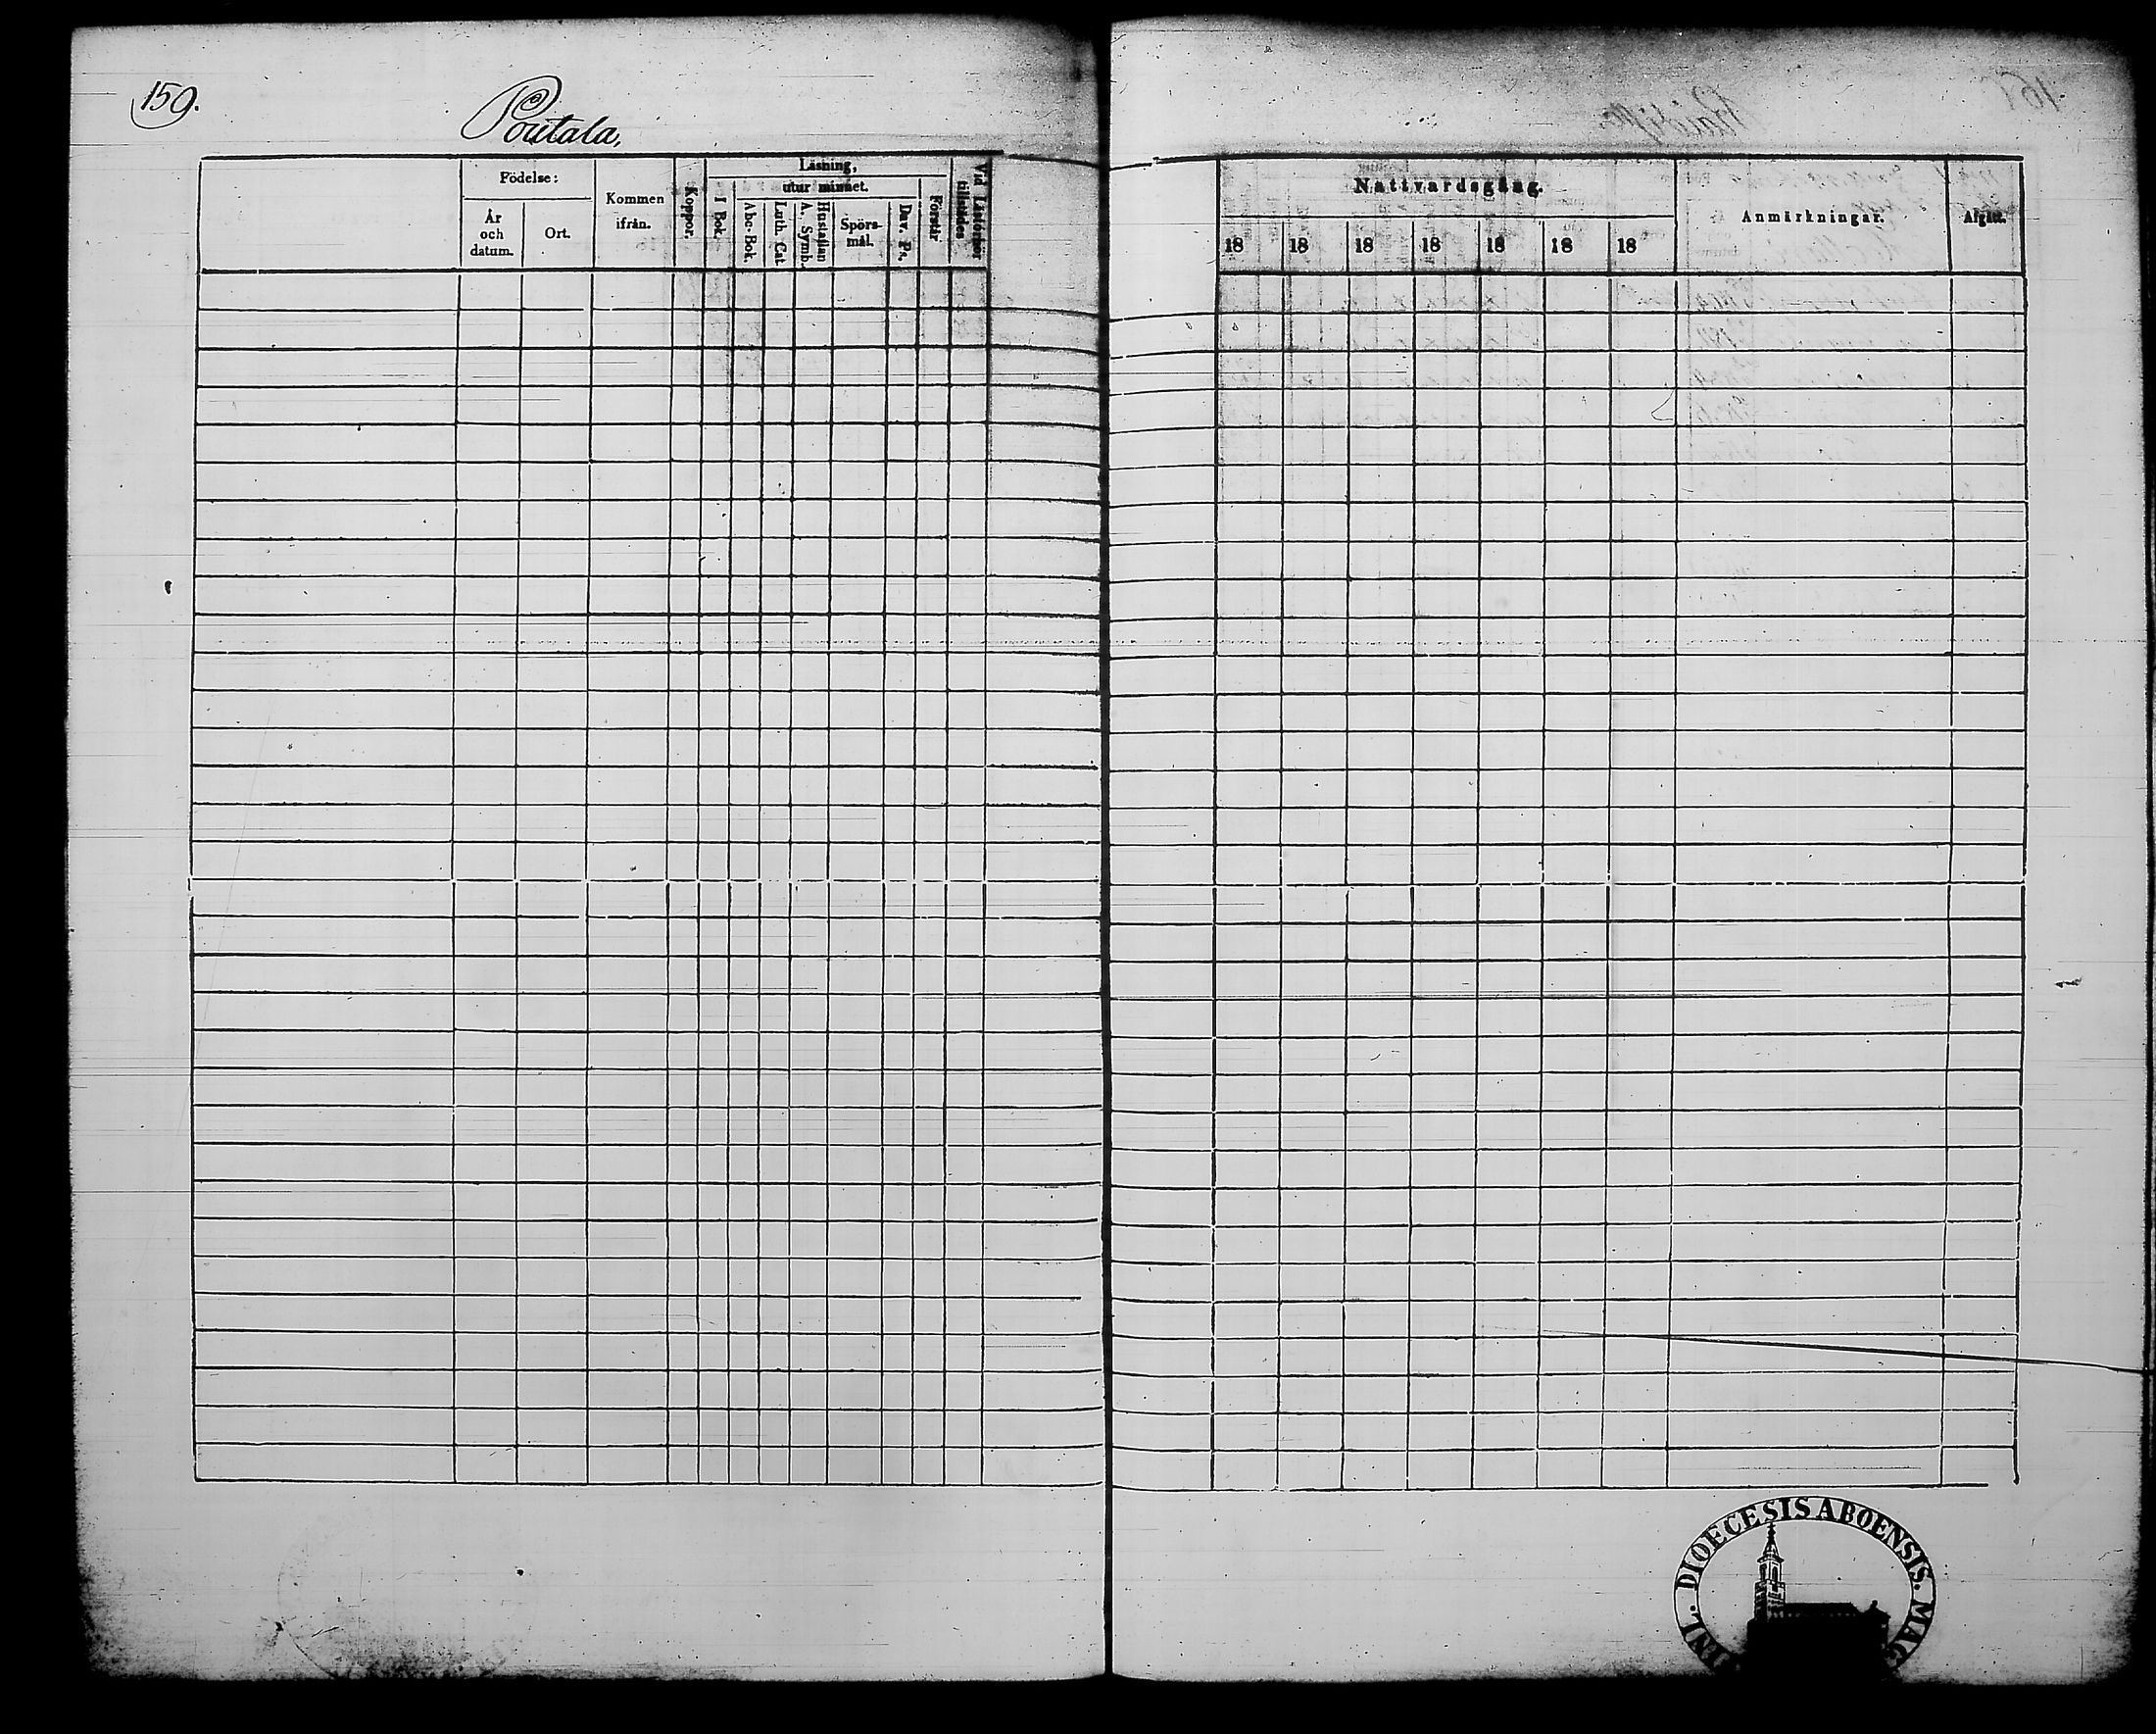 159.
Poutala,
Födelse:
År och datum.
Ort.
Kommen ifrån.
Koppor.
Läsning,
utur minnet.
I Bok.
Abc-Bok.
Luth. Cat.
Hustaflan
A. Symb.
Spörs-mål.
Dav. Ps.
Förstår
Vid Läsförhör tillstädes
Nattvardsgång.
18 18 18 18 18 18 18
Anmärkningar.
Afgått.
DIOECESIS ABOENSIS.